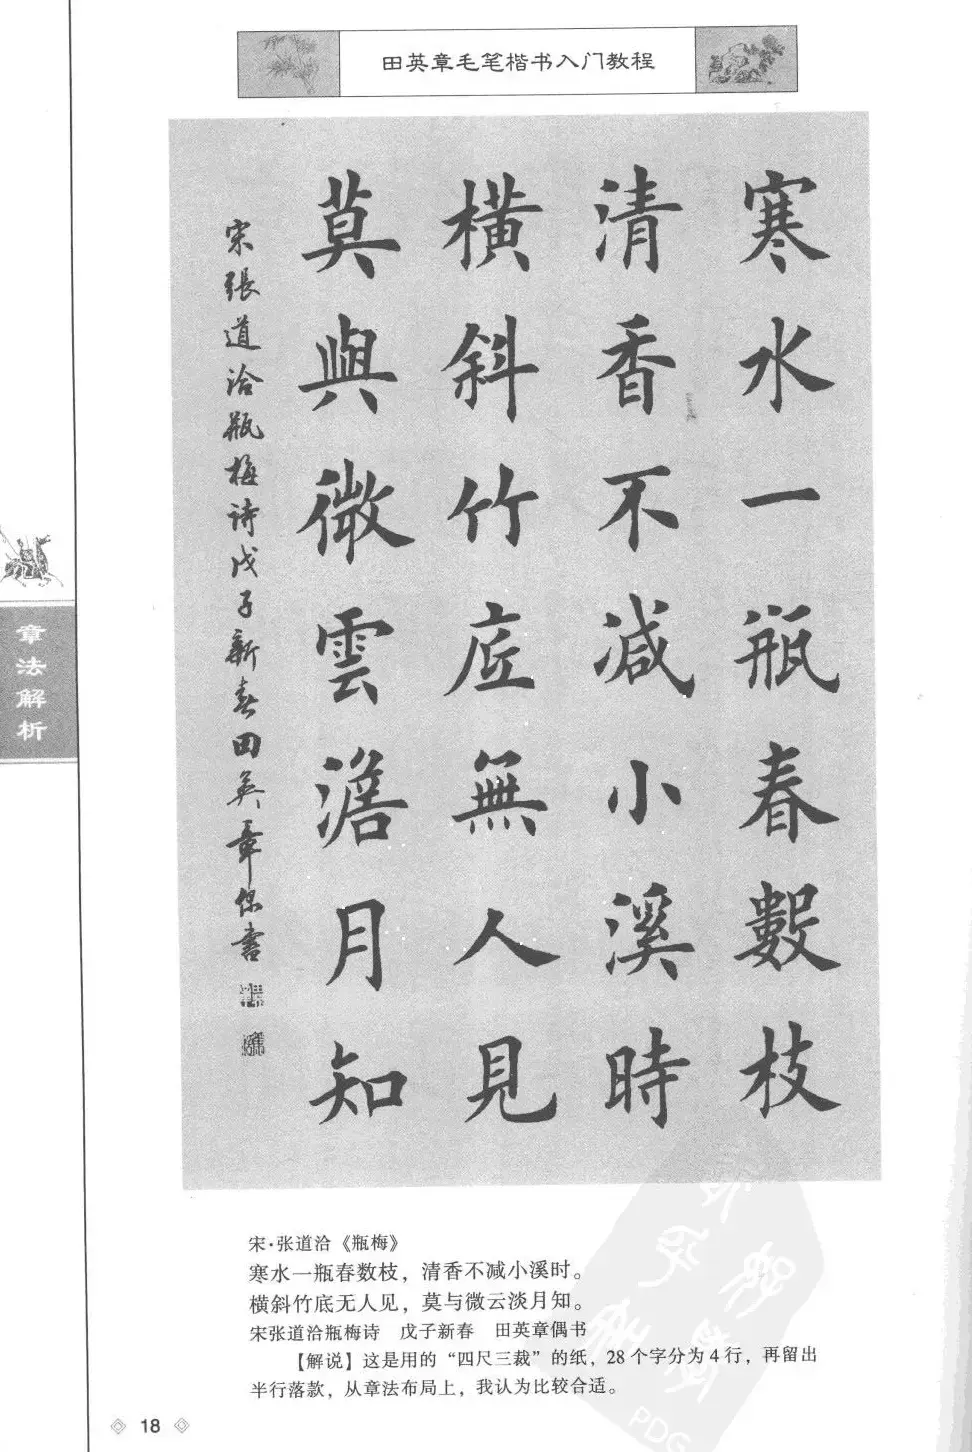 田英章毛笔楷书入门教程
寒水一瓶春數枝
清香不減小溪時
橫斜竹底無人見
莫與微雲澹月知
宋張道洽瓶梅詩戊子新春田英章偶書
章法解析
宋·张道洽《瓶梅》
寒水一瓶春数枝，清香不减小溪时。
横斜竹底无人见，莫与微云淡月知。
宋张道洽瓶梅诗 戊子新春 田英章偶书
【解说】这是用的“四尺三裁”的纸，28个字分为4行，再留出
半行落款，从章法布局上，我认为比较合适。
18
PDG